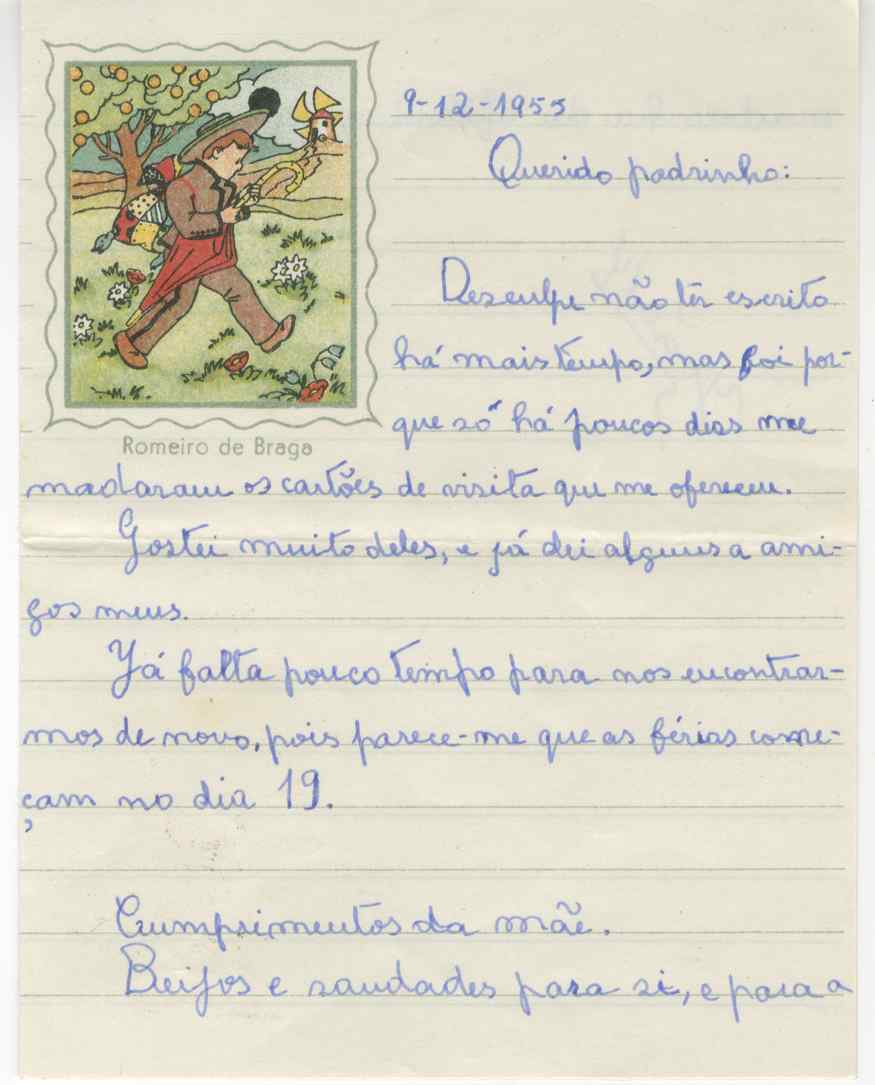 9-12-1955
Querido padrinho:
Desculpe não ter escrito
há mais tempo, mas foi por-
que só há poucos dias me
Romeiro de Braga
madaram os cartões de visita que me ofereceu.
Gostei muito deles, e já dei alguns a ami-
gos meus.
Já falta pouco tempo para nos encontrar-
mos de novo, pois parece-me que as férias come-
çam no dia 19.
Cumprimentos da mãe.
Beijos e saudades para si, e para a